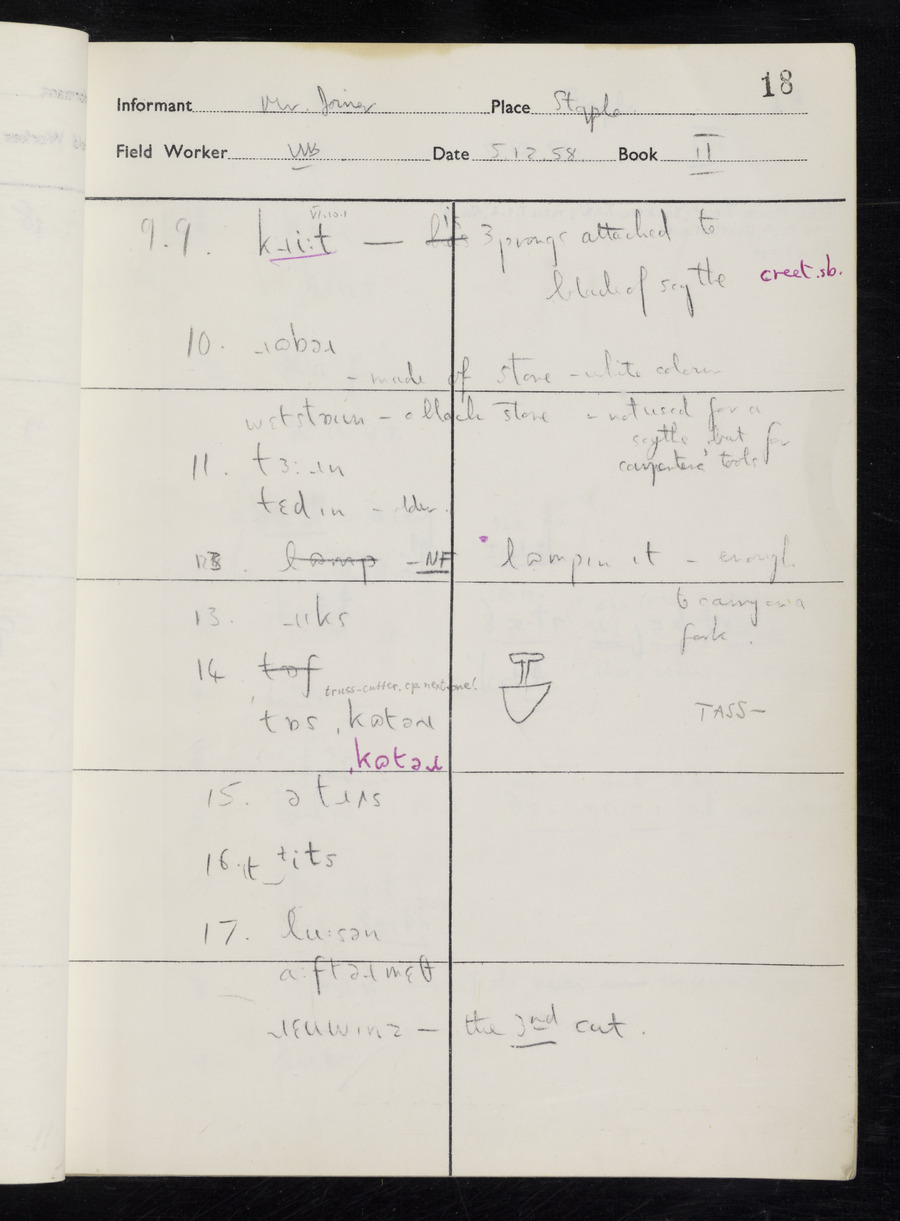 18
Informant Mr. Joiner Place Staple
Field Worker Date 5.12.58 Book II
VI.10.1
9.9. kɹiːt — 3 prongs attached to
blade of scythe creet. sb.
10. ɹɵbəɹ
- made of stone - white colour
wɛtstəʊn - a black stone - not used for a
scythe, but for
carpenters' tools
11. tɜːɹɪn
tɛdɪn - older.
13. lamp - NF lampɪn ɪt - enough
to carry on a
13. ɹɪks fork.
14 tɒf
truss-cutter, cp. next one!
tɹɒs ˌkɵtəɹ TASS—
ˌkɵtəɹ
15. ə tɹʌs
16. ɪt
17. luːsən
aːftəɹmɛθ
— the 3nd cut.